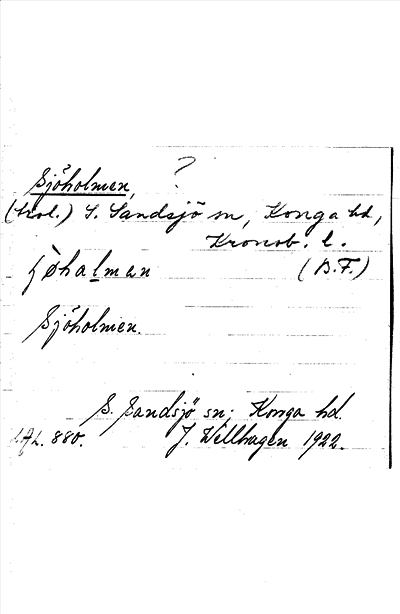 ?
Sjöholmen,
(trol.) S. Sandsjö sn, Konga hd,
Kronob. l.
(B.F.)
Sjöholmen.
S. Sandsjö sn; Konga hd.
880. J. Wellhagen 1922.